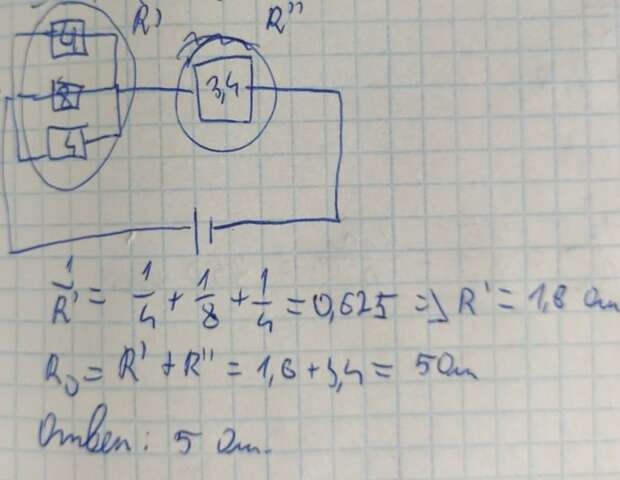 R' R"
4
8 3,4
4
1/R' = 1/4 + 1/8 + 1/4 = 0,625 => R' = 1,6 Ом
R₀ = R' + R" = 1,6 + 3,4 = 5 Ом
Ответ: 5 Ом.